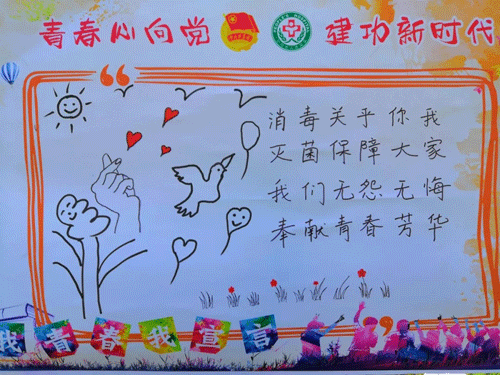 青春心向党 建功新时代
消毒关乎你我
灭菌保障大家
我们无怨无悔
奉献青春芳华
我青春我宣言